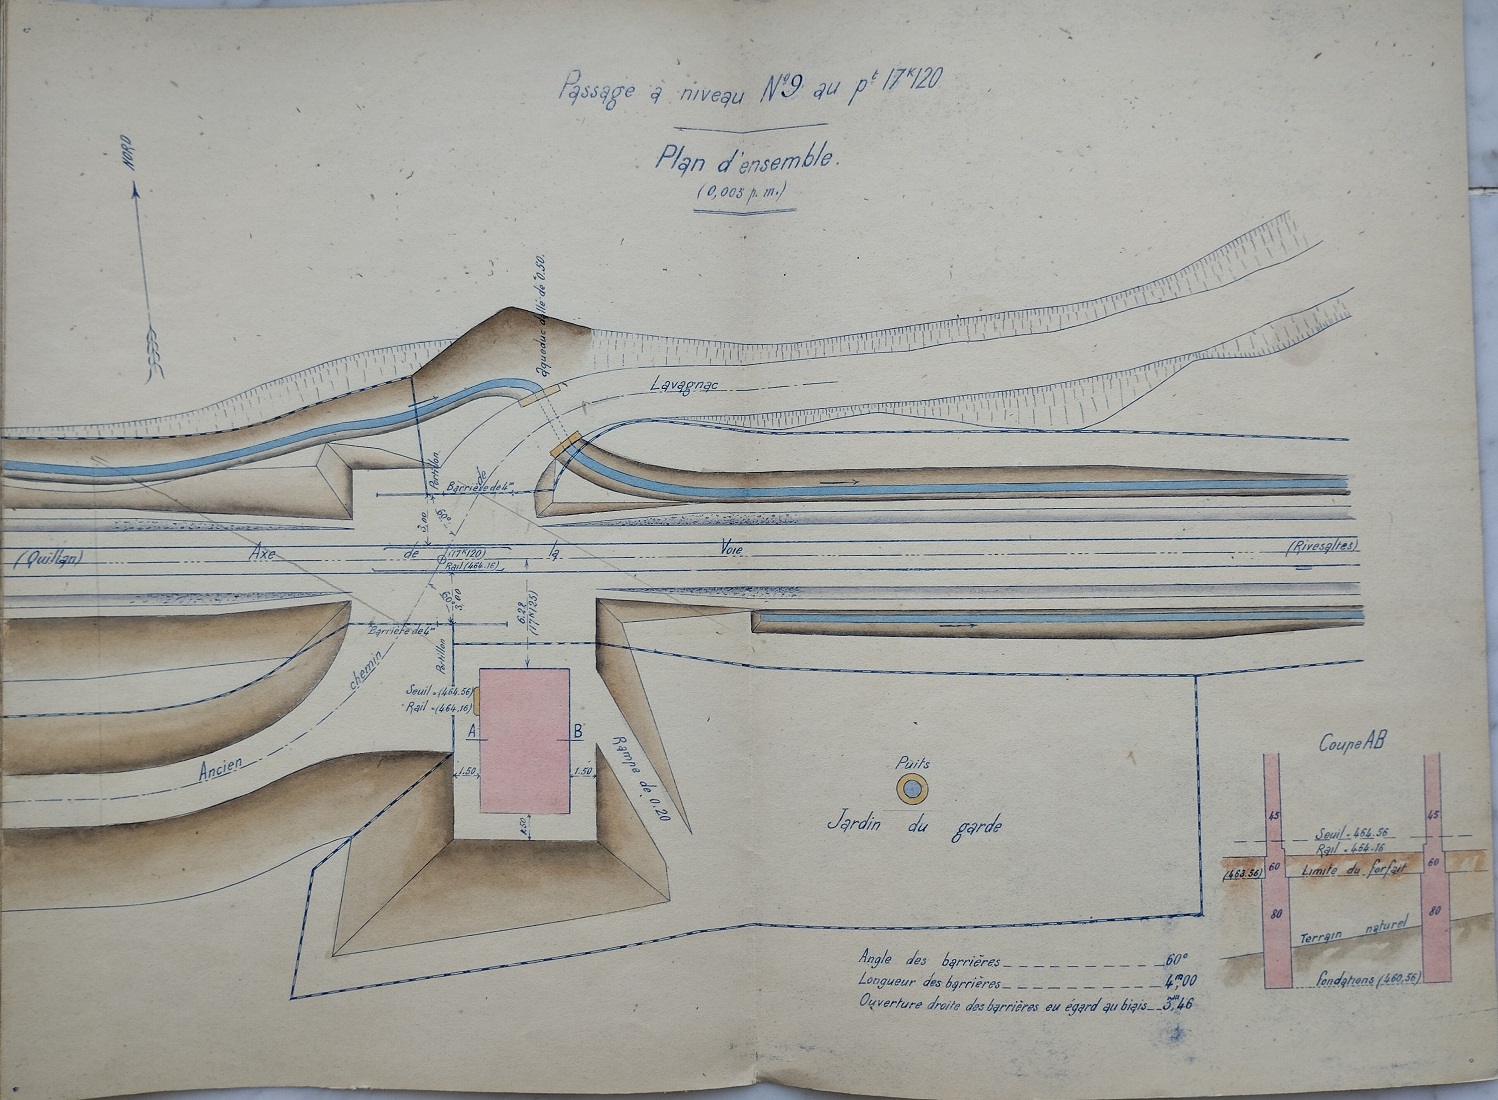 Passage à niveau Nº9 au pt 17K120
Plan d'ensemble.
(0,005 p. m.)
NORD
Aqueduc dallé de 0.50.
Lavagnac
de
Portillon
Barrière de 4m
3,00
60°
(Quillan)
Axe
de
la
Voie
(Rivesaltes)
(17K120)
Rail (464.16)
60°
3,00
6.22
(17K125)
Barrière de 4m
Portillon
chemin
Ancien
Seuil = (464.56)
Rail = (464.16)
A
B
1.50
1.50
1.50
Rampe de 0.20
Puits
Jardin du garde
Coupe AB
45
45
Seuil = 464.56
Rail = 464.16
(463.56)
60
Limite du forfait
60
80
80
Terrain naturel
Fondations (460,56)
Angle des barrières 60°
Longueur des barrières 4m,00
Ouverture droite des barrières eu égard au biais 3m,46